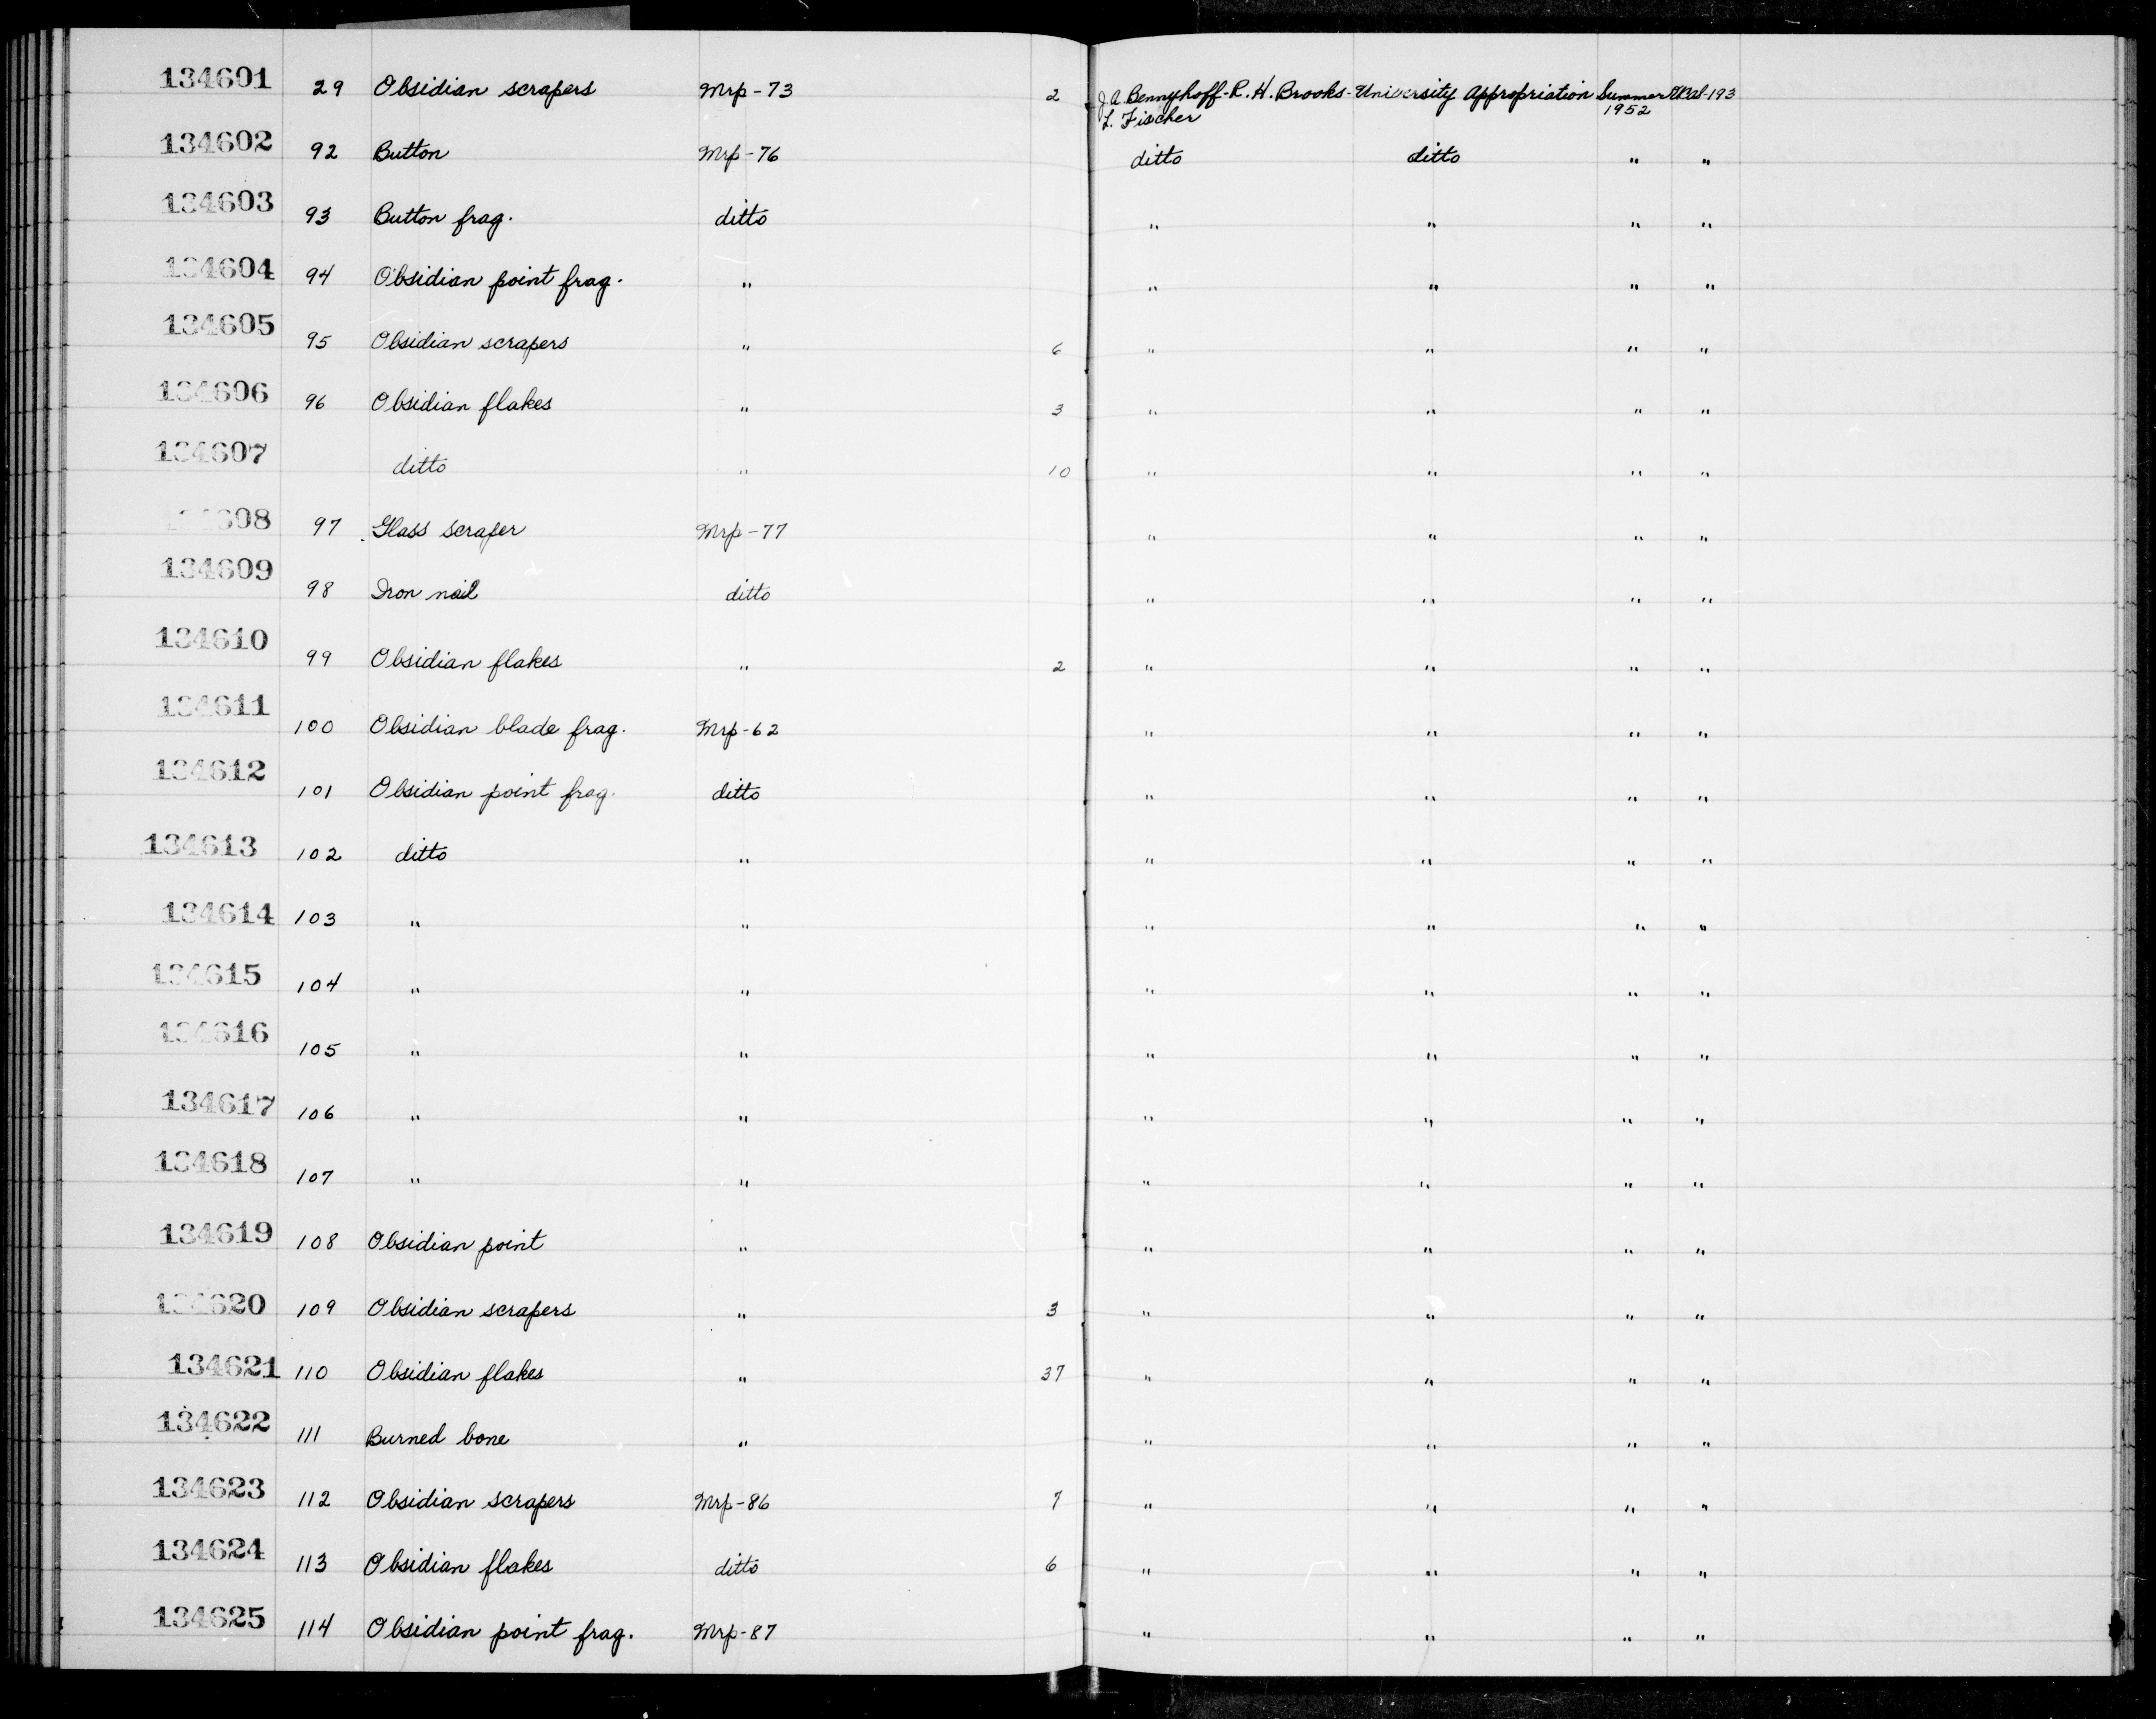 134601 29 Obsidian scrapers Mrp-73 2 J.A. Bennyhoff-R.H. Brooks- University Appropriation Summer UCal-193
L. Fischer 1952
134602 92 Button Mrp-76 ditto ditto " "
134603 93 Button frag. ditto " " " "
134604 94 Obsidian point frag. " " " " "
134605 95 Obsidian scrapers " 6 " " " "
134606 96 Obsidian flakes " 3 " " " "
134607 ditto " 10 " " " "
134608 97 Glass scraper Mrp-77 " " " "
134609 98 Iron nail ditto " " " "
134610 99 Obsidian flakes " 2 " " " "
134611 100 Obsidian blade frag. Mrp-62 " " " "
134612 101 Obsidian point frag. ditto " " " "
134613 102 ditto " " " " "
134614 103 " " " " " "
134615 104 " " " " " "
134616 105 " " " " " "
134617 106 " " " " " "
134618 107 " " " " " "
134619 108 Obsidian point " " " " "
134620 109 Obsidian scrapers " 3 " " " "
134621 110 Obsidian flakes " 37 " " " "
134622 111 Burned bone " " " " "
134623 112 Obsidian scrapers Mrp-86 7 " " " "
134624 113 Obsidian flakes ditto 6 " " " "
134625 114 Obsidian point frag. Mrp-87 " " " "